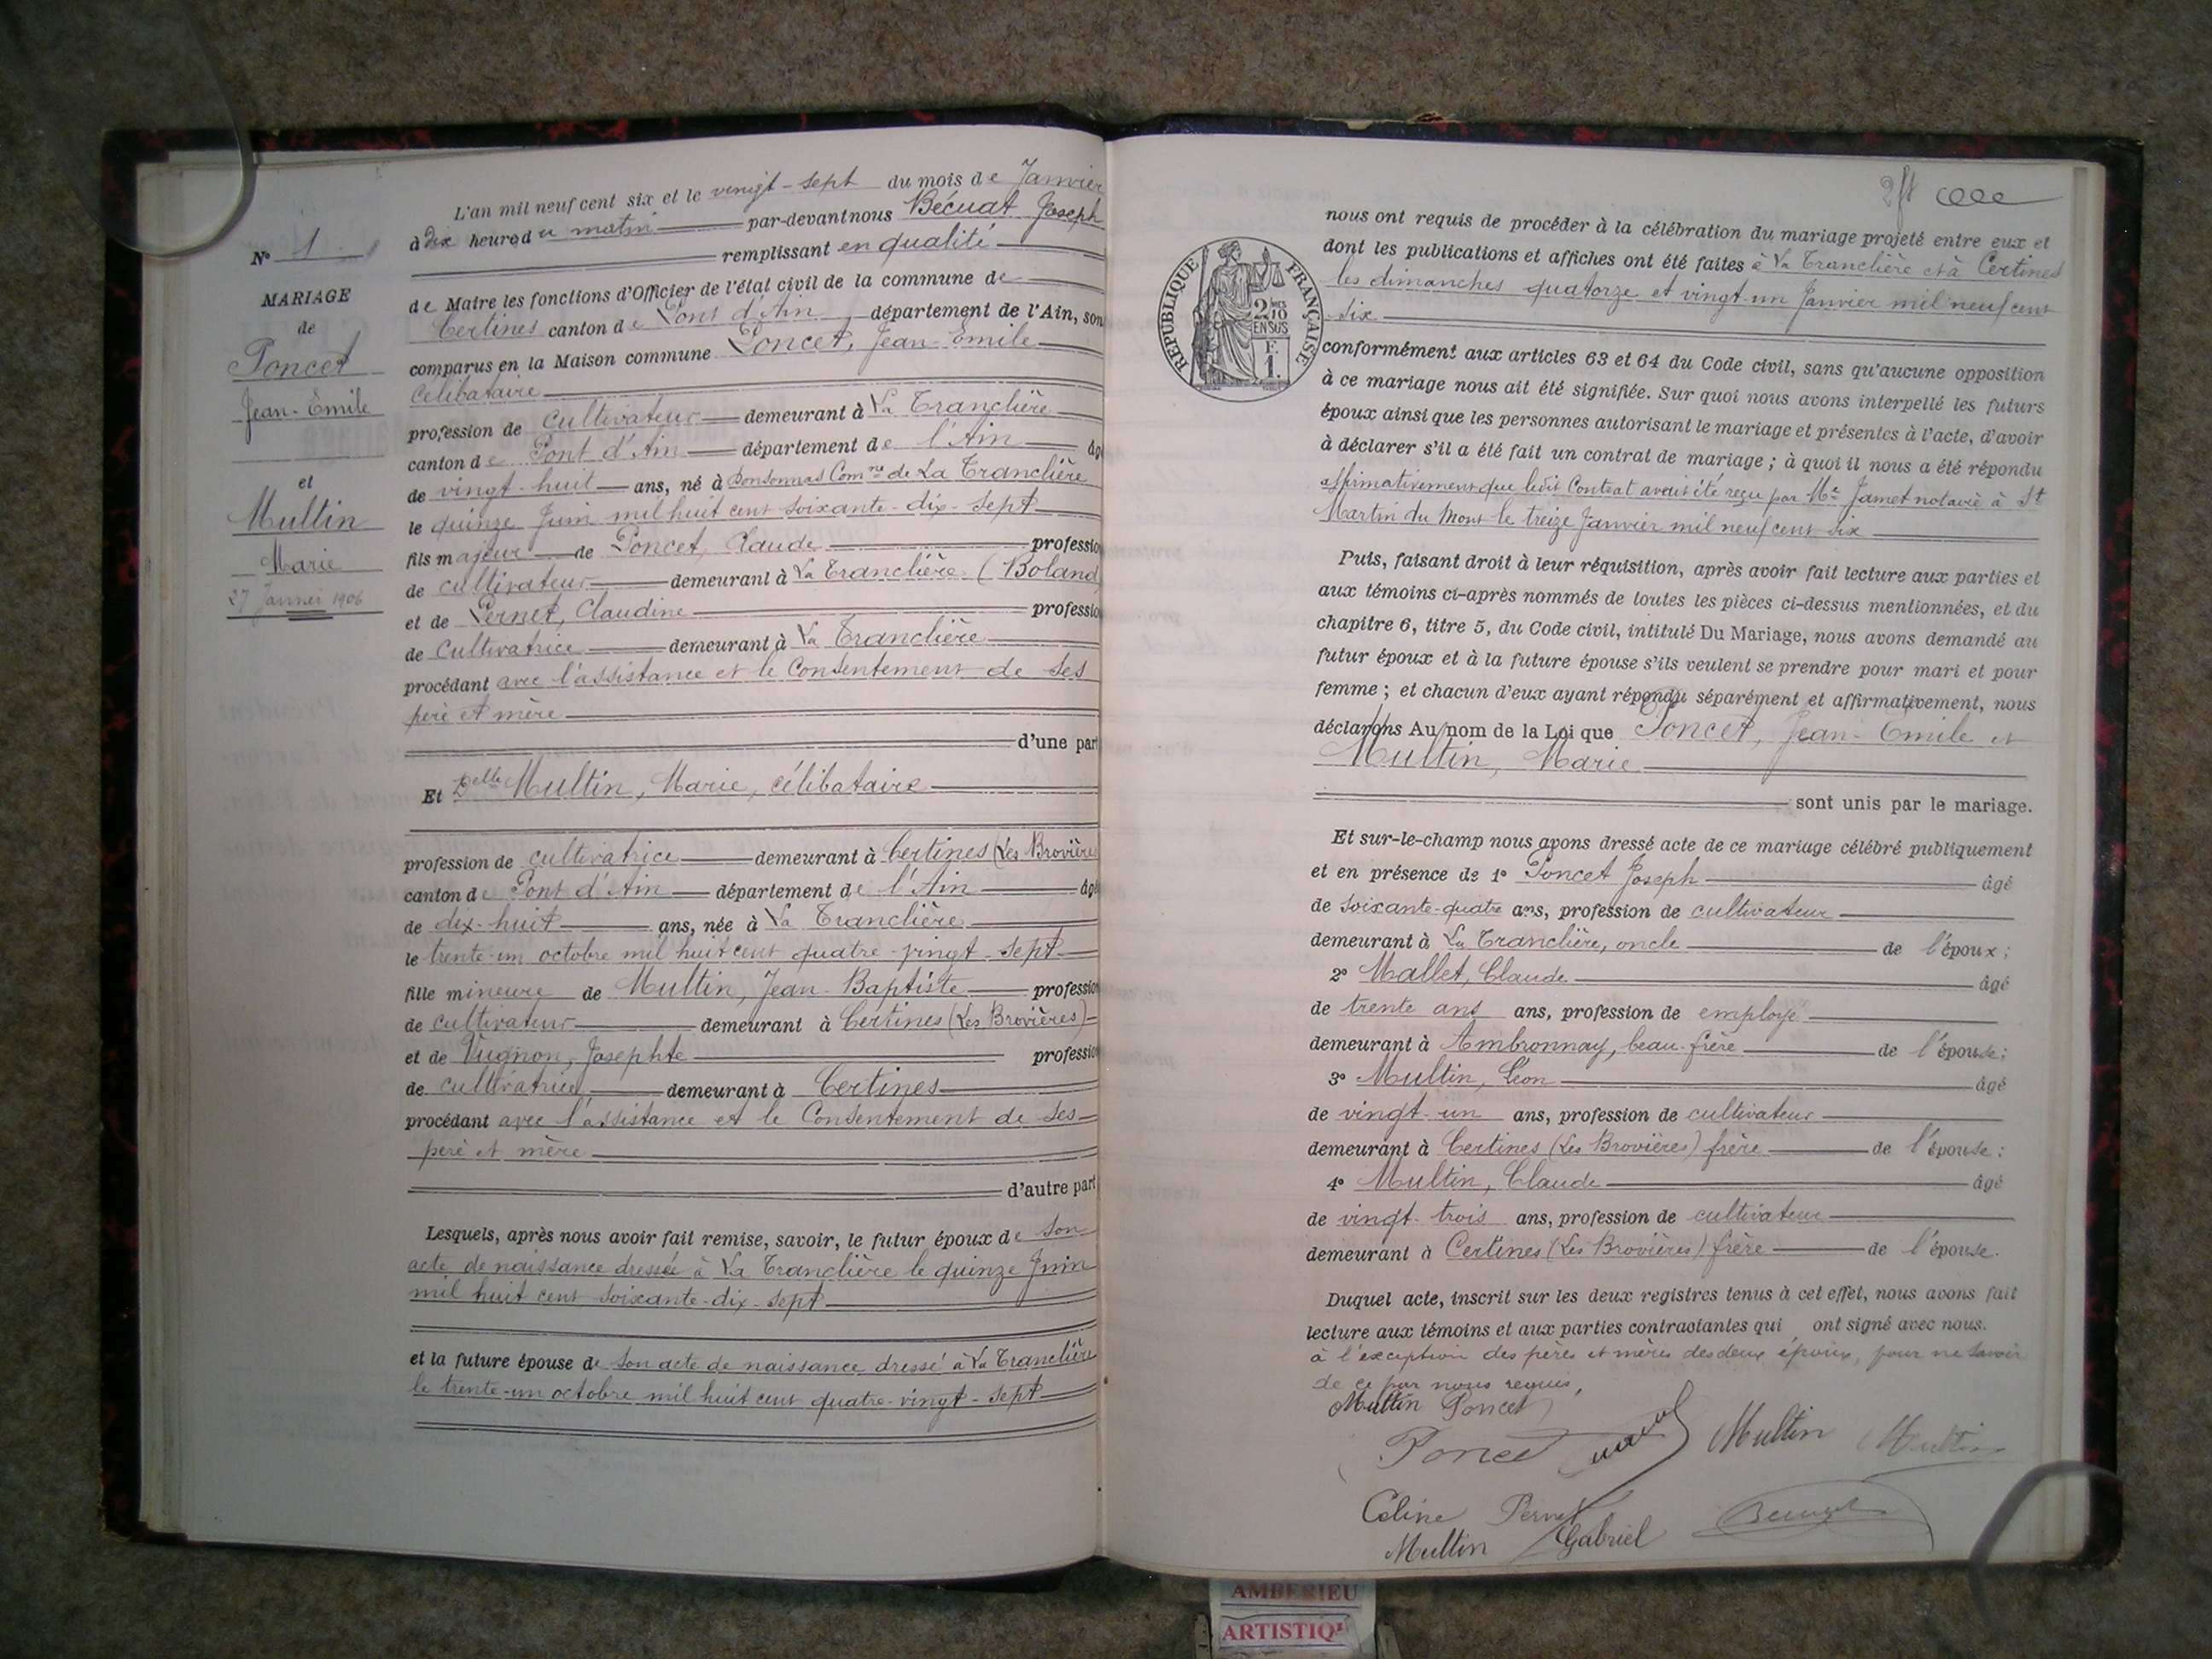 N° 1
MARIAGE
de
Poncet
Jean-Emile
et
Multin
Marie
27 Janvier 1906
L'an mil neuf cent six et le vingt-sept du mois de Janvier
à dix heures du matin par-devant nous Bécuat Joseph
remplissant en qualité
de Maire les fonctions d'Officier de l'état civil de la commune de
Certines canton de Pont d'Ain, département de l'Ain, son
comparus en la Maison commune Poncet, Jean-Emile
Célibataire
profession de cultivateur demeurant à La Tranclière
canton de Pont d'Ain département de l'Ain âg
de vingt-huit ans, né à Sonsonnas Com^ne de La Tranclière
le quinze Juin mil huit cent soixante-dix-sept
fils majeur de Poncet, Claude professio
de cultivateur demeurant à La Tranclière (Boland
et de Pernet, Claudine professio
de Cultivatrice demeurant à La Tranclière
procédant avec l'assistance et le Consentement de ses
père et mère
d'une part
Et Delle Multin, Marie, célibataire
profession de cultivatrice demeurant à Certines (Les Brovières
canton de Pont d'Ain département de l'Ain âgé
de dix-huit ans, née à La Tranclière
le trente-un octobre mil huit cent quatre-vingt-sept
fille mineure de Multin, Jean-Baptiste profession
de cultivateur demeurant à Certines (Les Brovières)
et de Vugnon, Josephte profession
de cultivatrice demeurant à Certines
procédant avec l'assistance et le Consentement de ses
père et mère
d'autre part
Lesquels, après nous avoir fait remise, savoir, le futur époux de son
acte de naissance dressée à La Tranclière le quinze Juin
mil huit cent soixante-dix-sept
et la future épouse de son acte de naissance dressé à La Tranclière
le trente-un octobre mil huit cent quatre-vingt-sept
2 ft
RÉPUBLIQUE FRANÇAISE
2 MES
10
EN SUS
F.
1.
nous ont requis de procéder à la célébration du mariage projeté entre eux et
dont les publications et affiches ont été faites à La Tranclière et à Certines
les dimanches quatorze et vingt-un Janvier mil neuf cent
six
conformément aux articles 63 et 64 du Code civil, sans qu'aucune opposition
à ce mariage nous ait été signifiée. Sur quoi nous avons interpellé les futurs
époux ainsi que les personnes autorisant le mariage et présentes à l'acte, d'avoir
à déclarer s'il a été fait un contrat de mariage ; à quoi il nous a été répondu
affirmativement que ledit Contrat avait été reçu par Me Jamet notaire à St
Martin du Mont le treize Janvier mil neuf cent six
Puis, faisant droit à leur réquisition, après avoir fait lecture aux parties et
aux témoins ci-après nommés de toutes les pièces ci-dessus mentionnées, et du
chapitre 6, titre 5, du Code civil, intitulé Du Mariage, nous avons demandé au
futur époux et à la future épouse s'ils veulent se prendre pour mari et pour
femme ; et chacun d'eux ayant répondu séparément et affirmativement, nous
déclarons Au nom de la Loi que Poncet, Jean-Emile et
Multin, Marie
sont unis par le mariage.
Et sur-le-champ nous avons dressé acte de ce mariage célébré publiquement
et en présence de 1° Poncet Joseph âgé
de soixante-quatre ans, profession de cultivateur
demeurant à La Tranclière, oncle de l'époux ;
2° Mallet, Claude âgé
de trente ans ans, profession de employé
demeurant à Ambronnay, beau-frère de l'épouse ;
3° Multin, Léon âgé
de vingt-un ans, profession de cultivateur
demeurant à Certines (Les Brovières) frère de l'épouse ;
4° Multin, Claude âgé
de vingt-trois ans, profession de cultivateur
demeurant à Certines (Les Brovières) frère de l'épouse.
Duquel acte, inscrit sur les deux registres tenus à cet effet, nous avons fait
lecture aux témoins et aux parties contractantes qui ont signé avec nous.
à l'exception des pères et mères des deux époux, pour ne savoir
de ce par nous requis,
Multin Poncet
Poncet Multin Multin
Céline Pernet
Multin Gabriel
AMBERIEU
ARTISTIQ